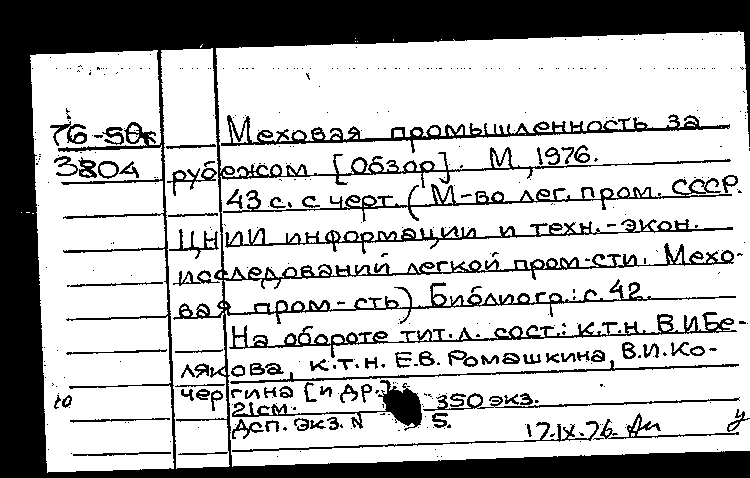 76-50к Меховая промышленность за
3804 рубежом. [Обзор]. М., 1976.
43 с. с черт. (М-во лег. пром. СССР.
ЦНИИ информации и техн.-экон.
исследований легкой пром-сти. Мехо-
вая пром-сть) Библиогр.: с. 42.
На обороте тит. л. сост.: к.т.н. В.И. Бе-
лякова, к.т.н. Е.В. Ромашкина, В.И. Ко-
чергина [и др.]
21 см. 350 экз.
Дсп. экз. N 5.
17.IX.76.